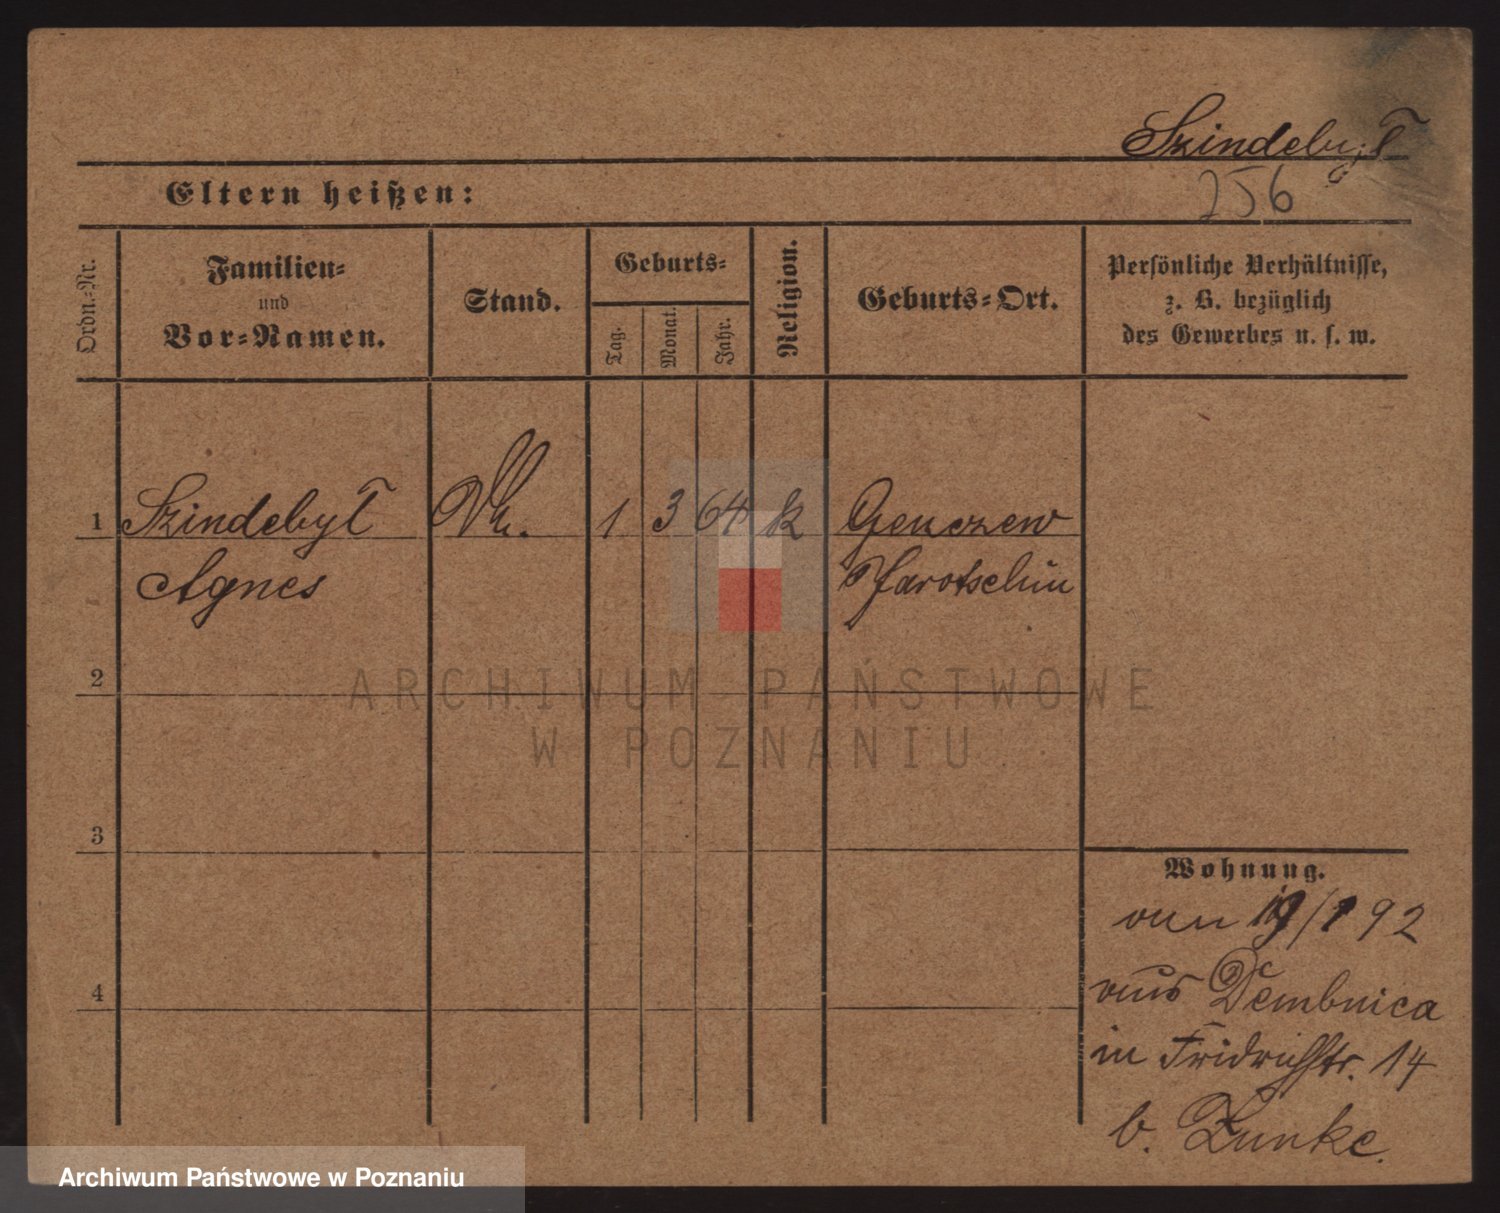 Szindebyt
256
Eltern heißen:
Ordn.-Nr.
Familien-
und
Vor-Namen.
Stand.
Geburts-
Tag.
Monat.
Jahr.
Religion.
Geburts-Ort.
Persönliche Verhältnisse,
z. B. bezüglich
des Gewerbes u. s. w.
1 Szindebyt 1 3 64 k
Agnes Jarotschin
ARCHIWUM PAŃSTWOWE
W POZNANIU
2
3
4
Wohnung.
19/1 92
aus Dembnica
in Fridrichstr. 14
b. Zunke.
Archiwum Państwowe w Poznaniu